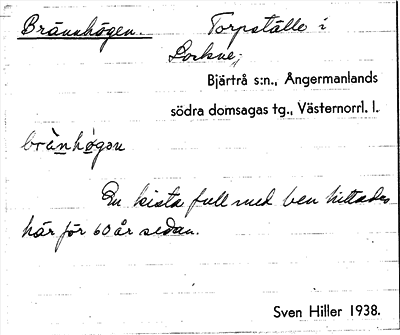 Brännhögen. Torpställe i
Lockne,
Bjärtrå s:n., Ångermanlands
södra domsagas tg., Västernorrl. l.
brännhögen
En kista full med ben hittades
här för 60 år sedan.
Sven Hiller 1938.